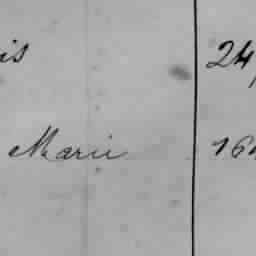 is 24
Marie 16